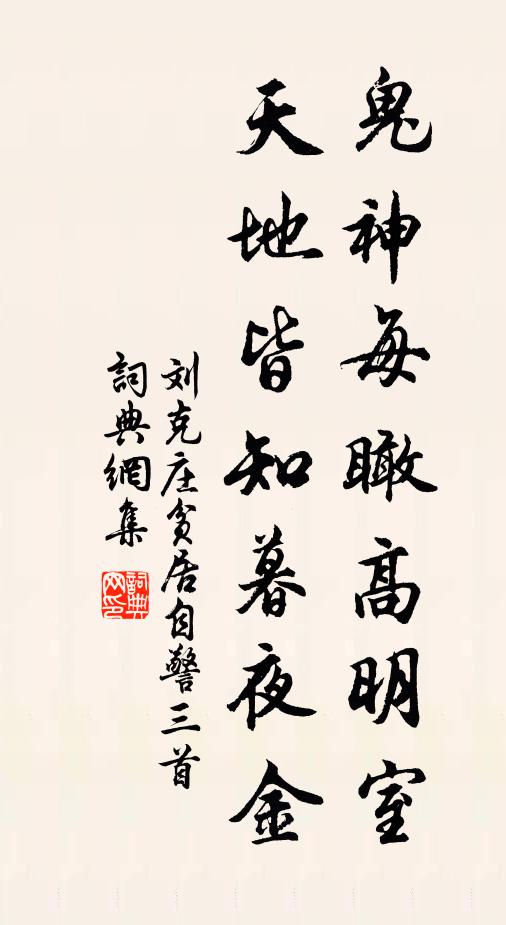 鬼神每瞰高明室
天地皆知暮夜金
刘克庄贫居自警三首
詞典網集
詞典网印